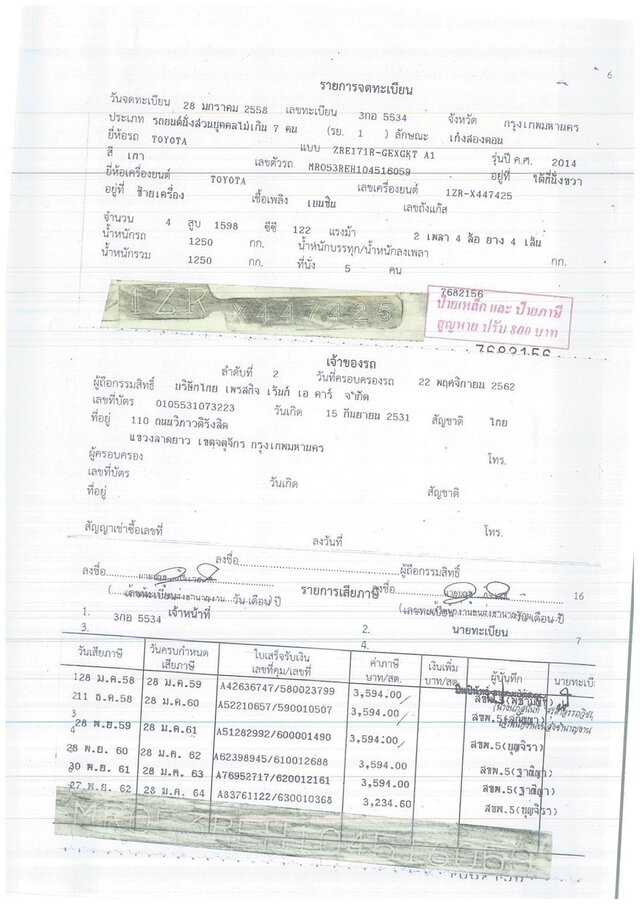 6
รายการจดทะเบียน
วันจดทะเบียน 28 มกราคม 2558 เลขทะเบียน 3กอ 5534 จังหวัด กรุงเทพมหานคร
ประเภท รถยนต์นั่งส่วนบุคคลไม่เกิน 7 คน (รย. 1 ) ลักษณะ เก๋งสองตอน
ยี่ห้อรถ TOYOTA แบบ ZRE171R-GEXGKT A1 รุ่นปี ค.ศ. 2014
สี เทา เลขตัวรถ MR053REH104516059 อยู่ที่ ใต้ที่นั่งขวา
ยี่ห้อเครื่องยนต์ TOYOTA เลขเครื่องยนต์ 1ZR-X447425
อยู่ที่ ซ้ายเครื่อง เชื้อเพลิง เบนซิน เลขถังแก๊ส
จำนวน 4 สูบ 1598 ซีซี 122 แรงม้า 2 เพลา 4 ล้อ ยาง 4 เส้น
น้ำหนักรถ 1250 กก. น้ำหนักบรรทุก/น้ำหนักลงเพลา กก.
น้ำหนักรวม 1250 กก. ที่นั่ง 5 คน
7682156
1ZR X447425
ป้ายเหล็ก และ ป้ายภาษี
สูญหาย ปรับ 800 บาท
7682156
เจ้าของรถ
ลำดับที่ 2 วันที่ครอบครองรถ 22 พฤศจิกายน 2562
ผู้ถือกรรมสิทธิ์ บริษัทไทย เพรสทิจ เร้นท์ เอ คาร์ จำกัด
เลขที่บัตร 0105531073223 วันเกิด 15 กันยายน 2531 สัญชาติ ไทย
ที่อยู่ 110 ถนนวิภาวดีรังสิต
แขวงลาดยาว เขตจตุจักร กรุงเทพมหานคร
ผู้ครอบครอง โทร.
เลขที่บัตร วันเกิด สัญชาติ
ที่อยู่
โทร.
สัญญาเช่าซื้อเลขที่ ลงวันที่
ลงชื่อ ผู้ถือกรรมสิทธิ์
ลงชื่อ ลงชื่อ
รายการเสียภาษี 16
วัน เดือน ปี
1. 3กอ 5534 เจ้าหน้าที่ 2. นายทะเบียน 7
3. 4.
วันเสียภาษี วันครบกำหนดเสียภาษี ใบเสร็จรับเงิน เล่มที่คุม/เลขที่ ค่าภาษี บาท/สต. เงินเพิ่ม บาท/สต. ผู้บันทึก นายทะเบี
128 ม.ค.58 28 ม.ค.59 A42636747/580023799 3,594.00
211 ธ.ค.58 28 ม.ค.60 A52210657/590010507 3,594.00
3
28 พ.ย.59 28 ม.ค.61 A51282992/600001490 3,594.00 สขพ.5(บุญจิรา)
4
28 พ.ย. 60 28 ม.ค. 62 A62398945/610012688 3,594.00 สขพ.5(ฐาติญา)
30 พ.ย. 61 28 ม.ค. 63 A76952717/620012161 3,594.00 สขพ.5(ฐาติญา)
27 พ.ย. 62 28 ม.ค. 64 A83761122/630010368 3,234.60 สขพ.5(บุญจิรา)
MR053REH104516059